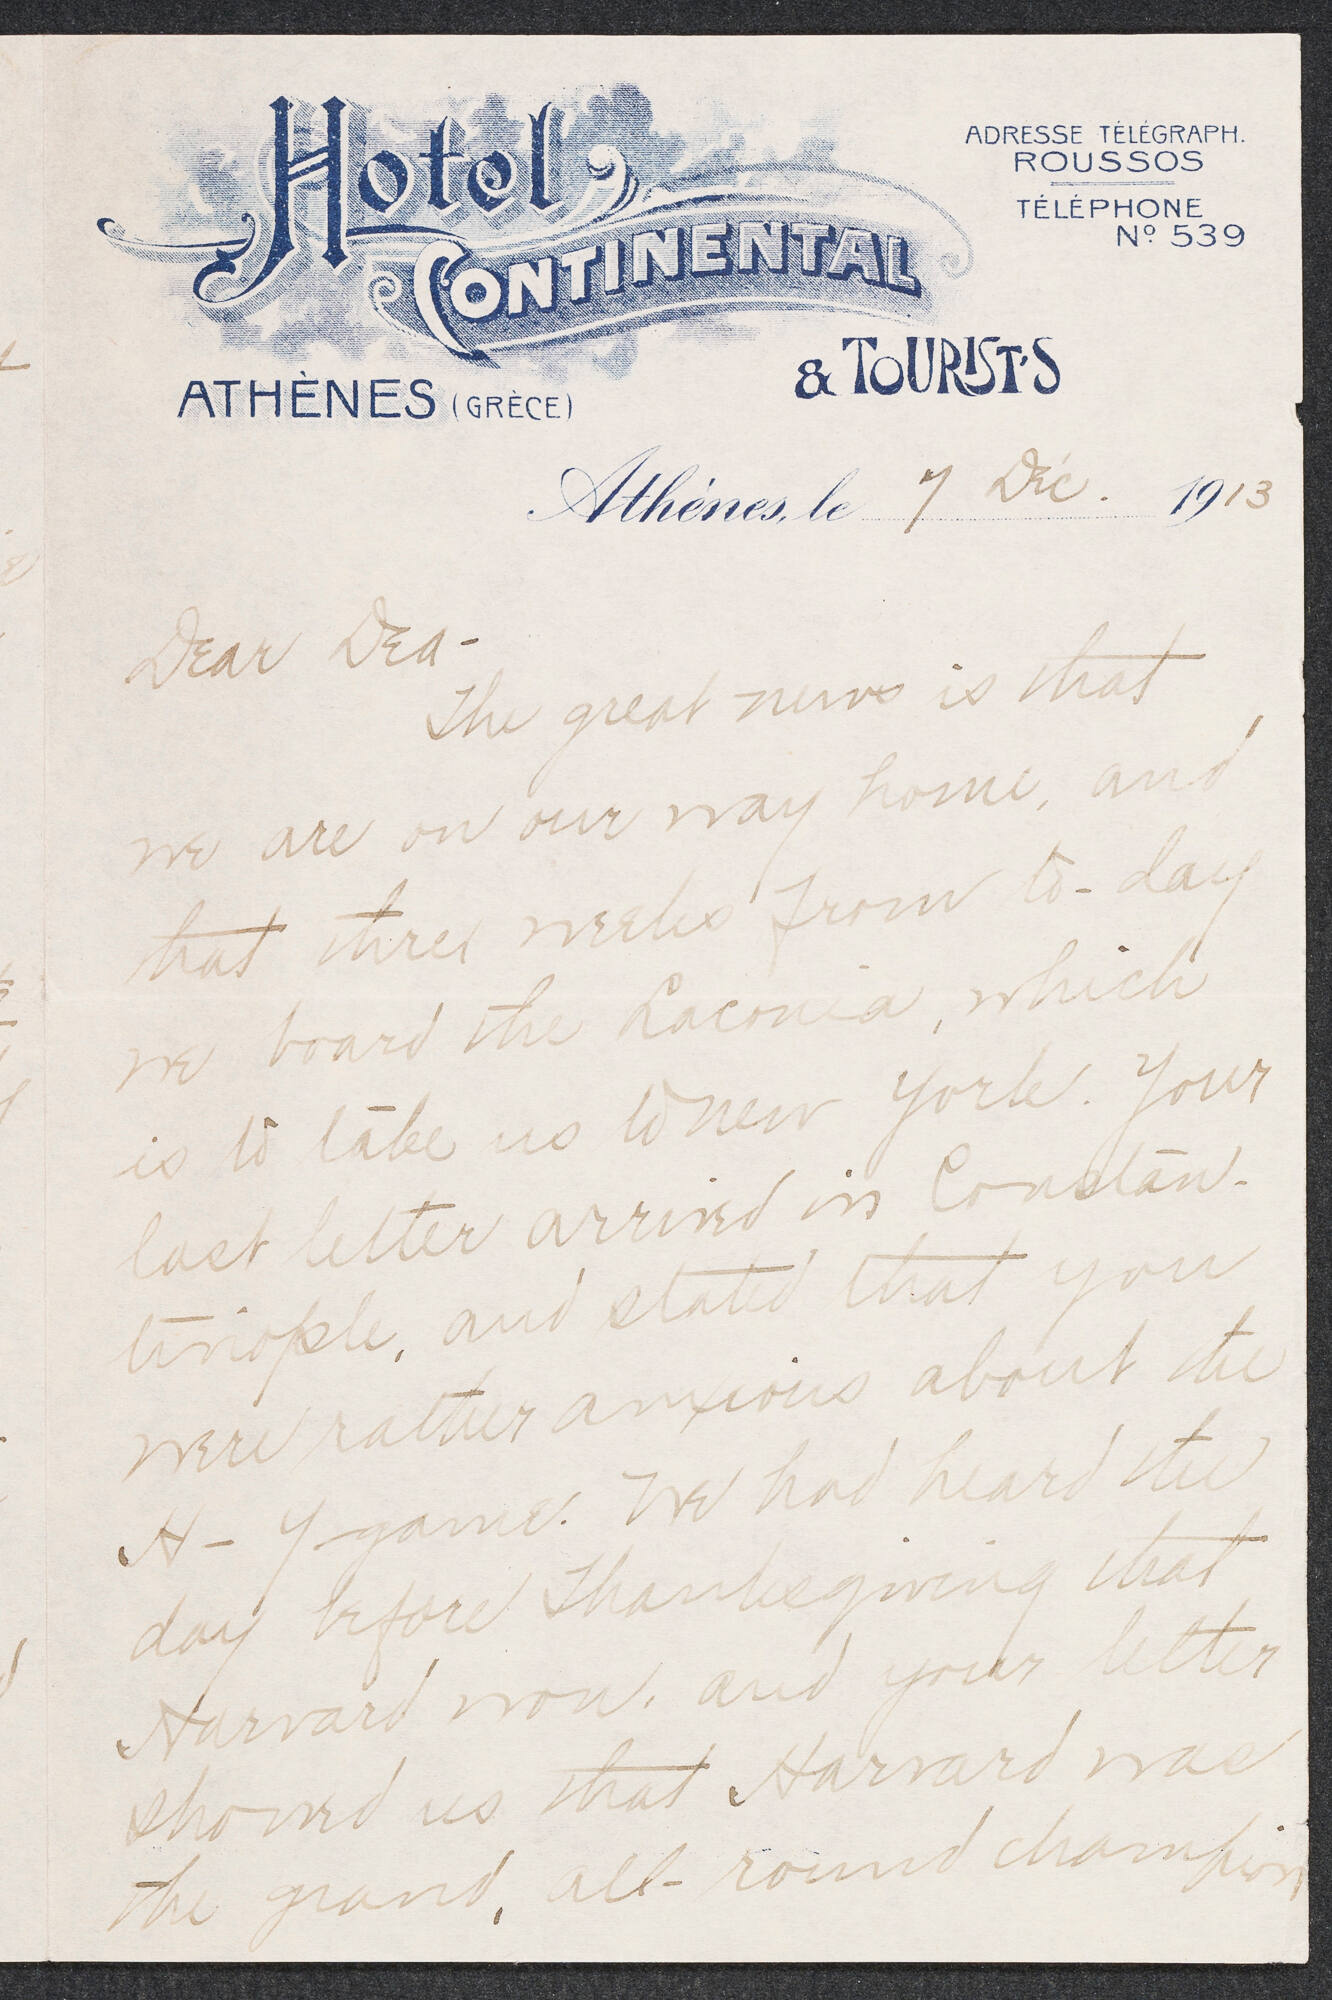 Hotel
CONTINENTAL
& TOURIST'S
ATHÈNES (GRÈCE)
ADRESSE TÉLÉGRAPH.
ROUSSOS
TÉLÉPHONE
Nº 539
Athènes, le 7 Déc. 1913
Dear Dea-
The great news is that
we are on our way home, and
that three weeks from to-day
we board the Laconia, which
is to take us to New York. Your
last letter arrived in Constan-
tinople, and stated that you
were rather anxious about the
H-Y game. We had heard the
day before Thanksgiving that
Harvard won, and your letter
showed us that Harvard was
the grand, all-round champion